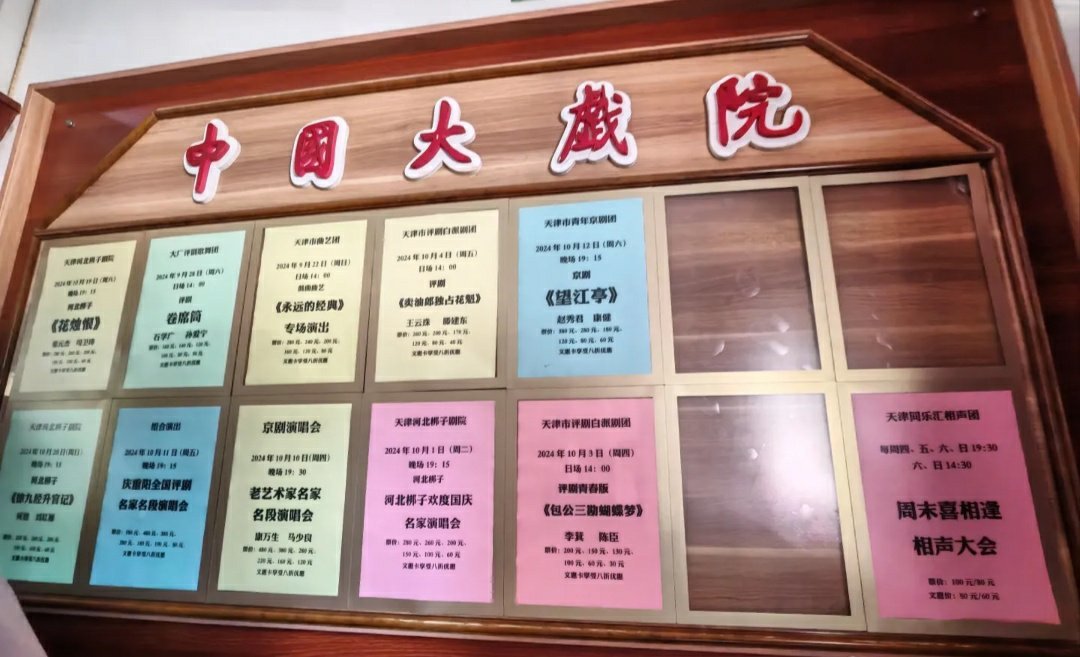 中國大戲院
天津河北梆子剧院
2024年10月19日(周六)
晚场19：15
河北梆子
《花烛恨》
大厂评剧歌舞团
2024年9月28日(周六)
日场14：00
评剧
卷席筒
石学广 孙爱宁
文惠卡享受八折优惠
天津市曲艺团
2024年9月22日(周日)
日场14：00
鼓曲曲艺
《永远的经典》
专场演出
票价：280元、240元、200元、
160元、120元、80元
文惠卡享受八折优惠
天津市评剧白派剧团
2024年10月4日(周五)
日场14：00
评剧
《卖油郎独占花魁》
王云珠 滕建东
票价：260元、200元、170元、
120元、80元、40元
文惠卡享受八折优惠
天津市青年京剧团
2024年10月12日(周六)
晚场19：15
京剧
《望江亭》
赵秀君 康健
票价：380元、280元、180元、
120元、80元、60元
文惠卡享受八折优惠
天津河北梆子剧院
2024年10月20日(周日)
河北梆子
《徐九经升官记》
文惠卡享受八折优惠
组合演出
2024年10月11日(周五)
晚场19：15
庆重阳全国评剧
名家名段演唱会
文惠卡享受八折优惠
京剧演唱会
2024年10月10日(周四)
晚场19：30
老艺术家名家
名段演唱会
康万生 马少良
票价：480元、380元、260元、
220元、160元、120元
文惠卡享受八折优惠
天津河北梆子剧院
2024年10月1日(周二)
晚场19：15
河北梆子
河北梆子欢度国庆
名家演唱会
票价：280元、260元、200元、
150元、100元、60元
文惠卡享受八折优惠
天津市评剧白派剧团
2024年10月3日(周四)
日场14：00
评剧青春版
《包公三勘蝴蝶梦》
李莪 陈臣
票价：200元、150元、130元、
100元、60元、30元
文惠卡享受八折优惠
天津同乐汇相声团
每周四、五、六、日19:30
六、日14:30
周末喜相逢
相声大会
票价：100元/80元
文惠价：80元/60元